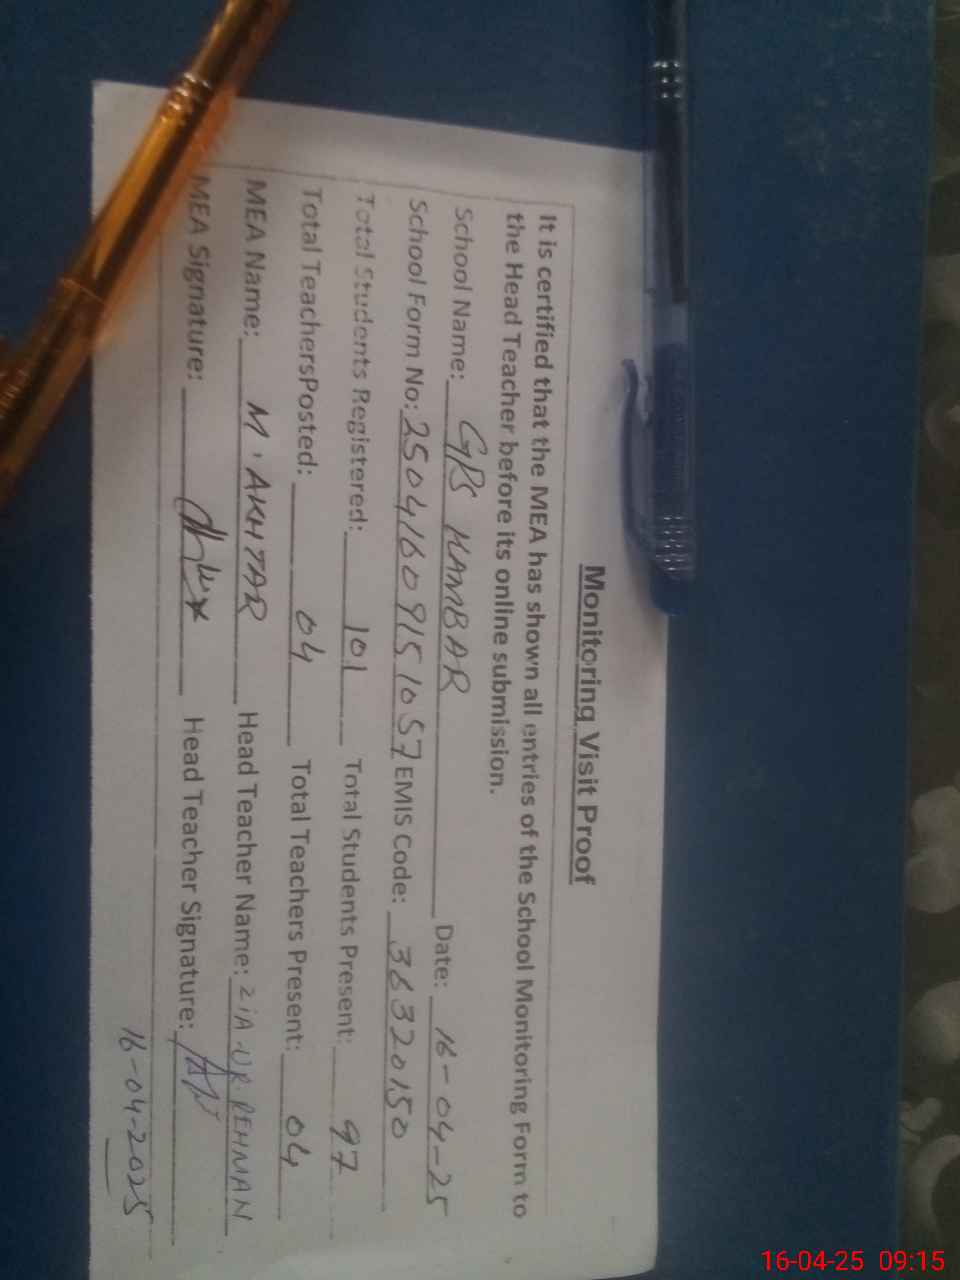 Monitoring Visit Proof
It is certified that the MEA has shown all entries of the School Monitoring Form to
the Head Teacher before its online submission.
School Name: GPS HAMBAR Date: 16-04-25
School Form No: 25041609151057 EMIS Code: 36320150
Total Students Registered: 101 Total Students Present: 97
Total TeachersPosted: 04 Total Teachers Present: 04
MEA Name: M. AKHTAR Head Teacher Name: ZIA-UR-REHMAN
MEA Signature: Head Teacher Signature:
16-04-2025
16-04-25 09:15